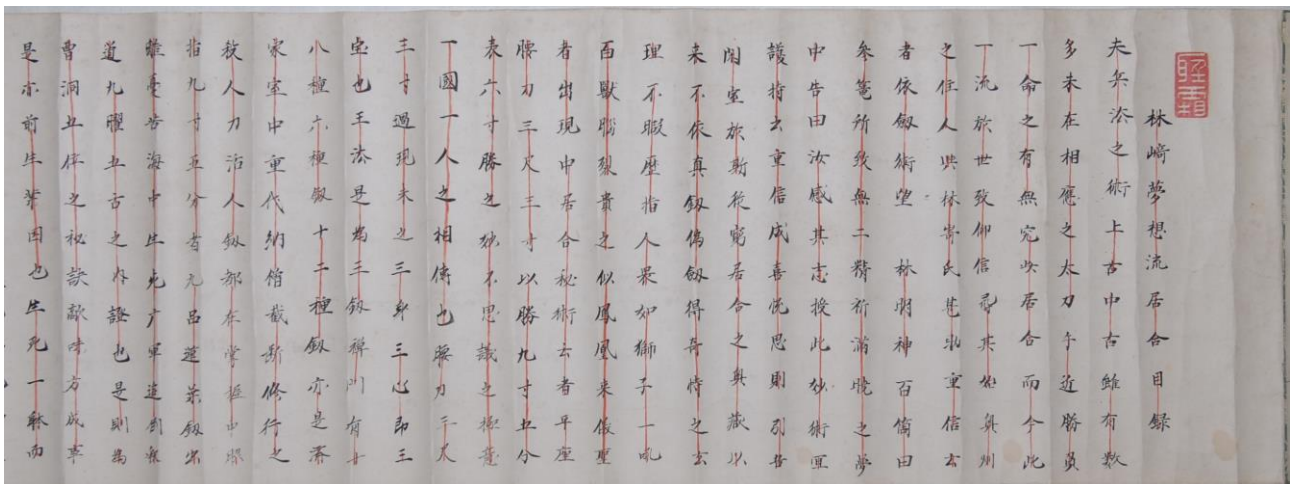 林﨑夢想流居合目録
夫兵法之術上古中古雖有数
多未在相應之太刀于近勝負
一命之有無究此居合而今此
一流於世致仰信尋其始奥州
之住人此林﨑氏甚助重信云
者依劔術望 林明神百箇日
参篭所致無二精祈満暁之夢
中告曰汝感其志授此妙術宜
護持云重信成喜悦思則引
閑室於斯後寛居合之奥蔵以
来不依真劔偽劔得奇特之玄
理不暇歴指人最如獅子一吼
百獣脳裂貴之似鳳凰来儀聖
者出現中居合秘術云者平座
腰刀三尺三寸以勝九寸五分
表六寸勝之妙不思議之極意
一國一人之相傳也腰刀三尺
三寸過現未之三身三心即三
宝也王法是為三劔禅門有廿
八種六種劔十二種劔亦是
家室中重代納箱截断修行之
殺人刀活人劔都在掌握中
指九寸五分者九品蓮葉劔
離憂苦海中生死广軍
道九曜五古之内證也是則為
曹洞五位之秘訣敵味方成
是亦前生業因也生死一躰而